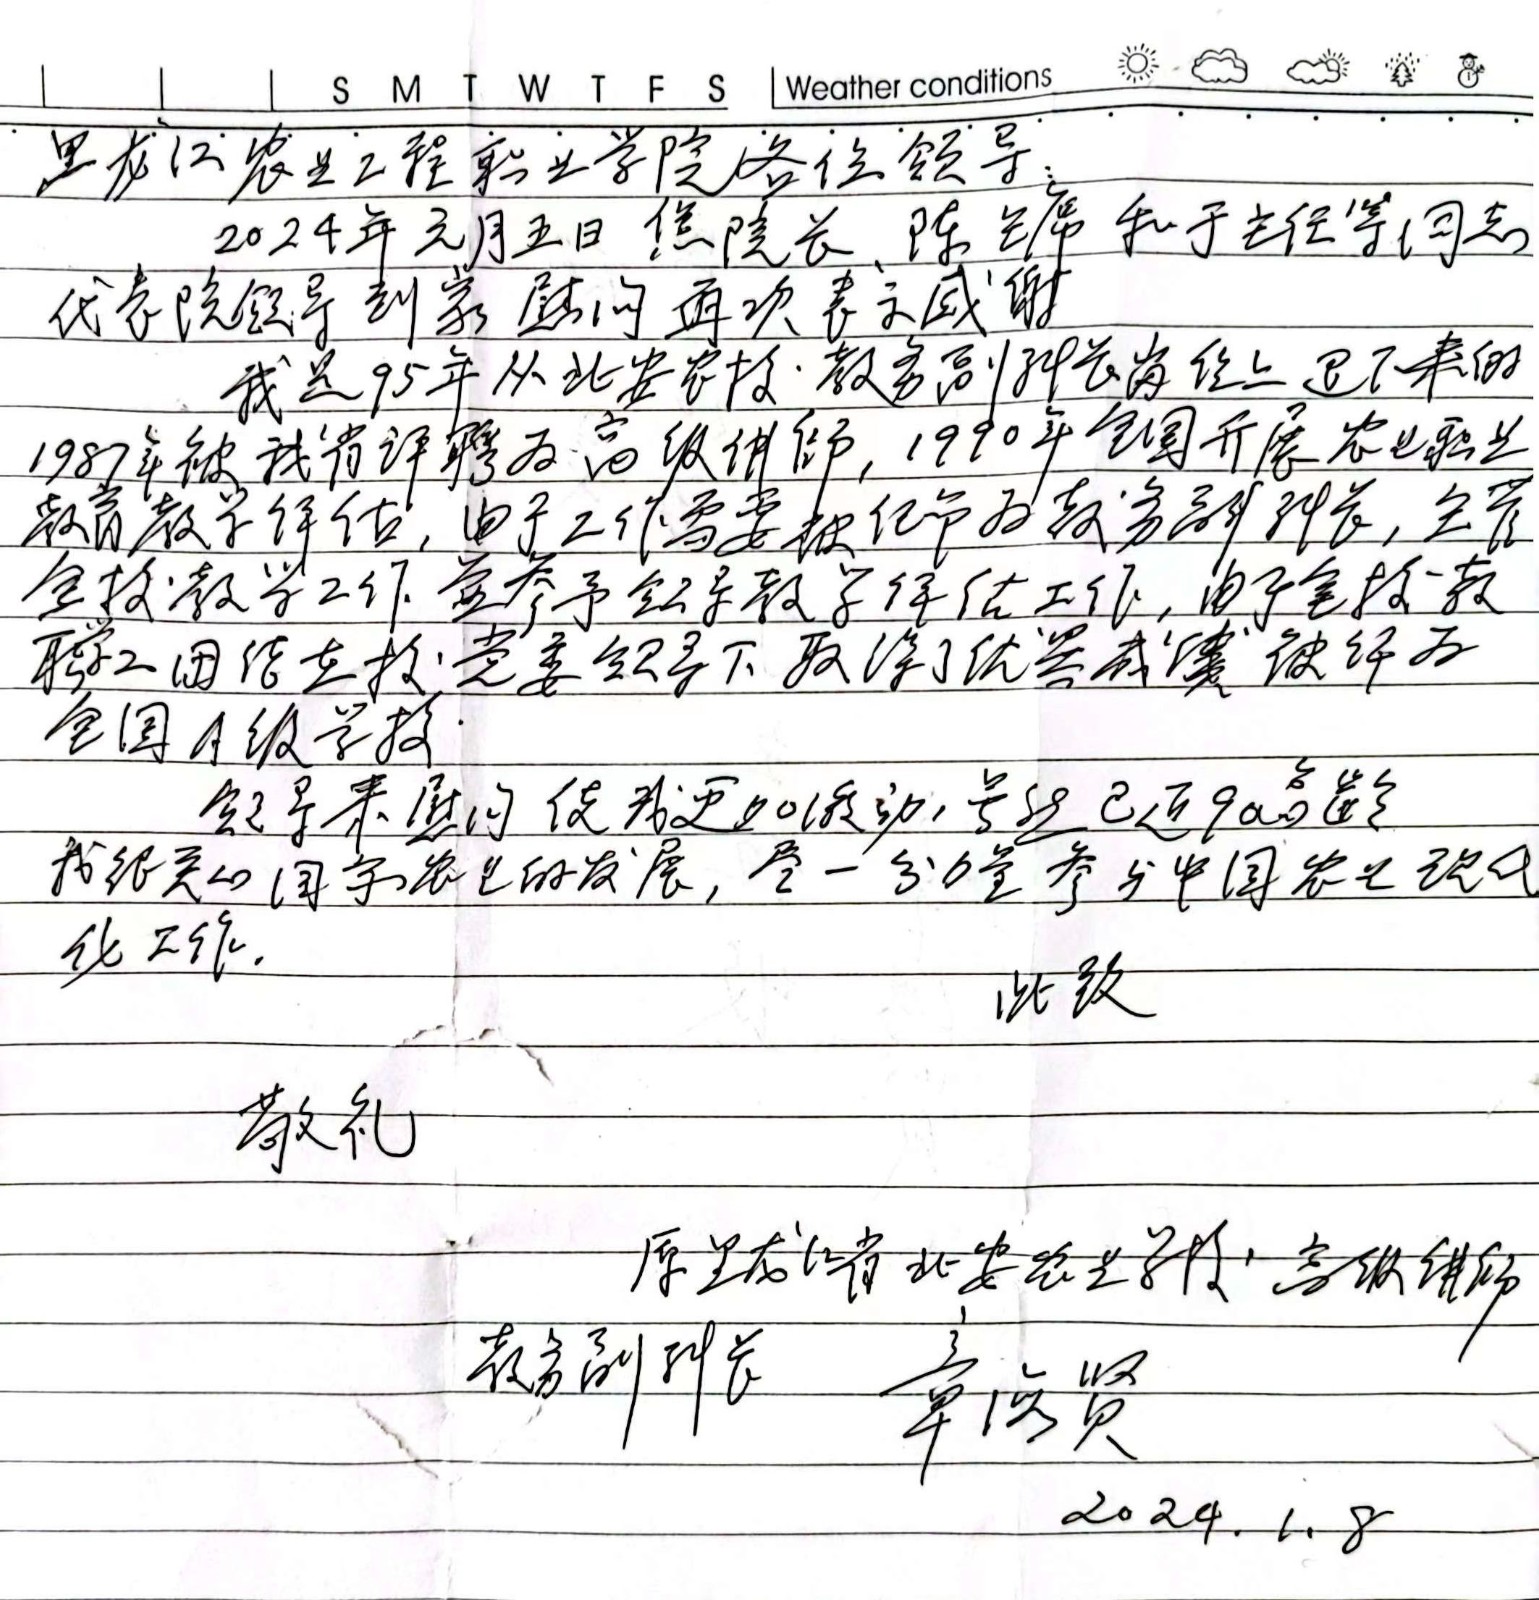 S M T W T F S Weather conditions
黑龙江农业工程职业学院各位领导:
2024年元月五日 焦院长、陈主席 和于主任等同志
代表院领导到家慰问再次表示感谢
我是95年从北安农校教务副科长岗位上退下来的
1987年被我省评聘为高级讲师,1990年全国开展农业职业
教育教学评估,由于工作需要被任命为教务副科长,主管
全校教学工作并参予领导教学评估工作,由于全校教
职工团结在校党委领导下取得了优异成绩被评为
全国A级学校
领导来慰问使我更加激动,虽已近90高龄
我很关心国家农业的发展,尽一分力量参与中国农业现代
化工作.
此致
敬礼
原黑龙江省北安农业学校高级讲师
教务副科长 章 贤
2024.1.8